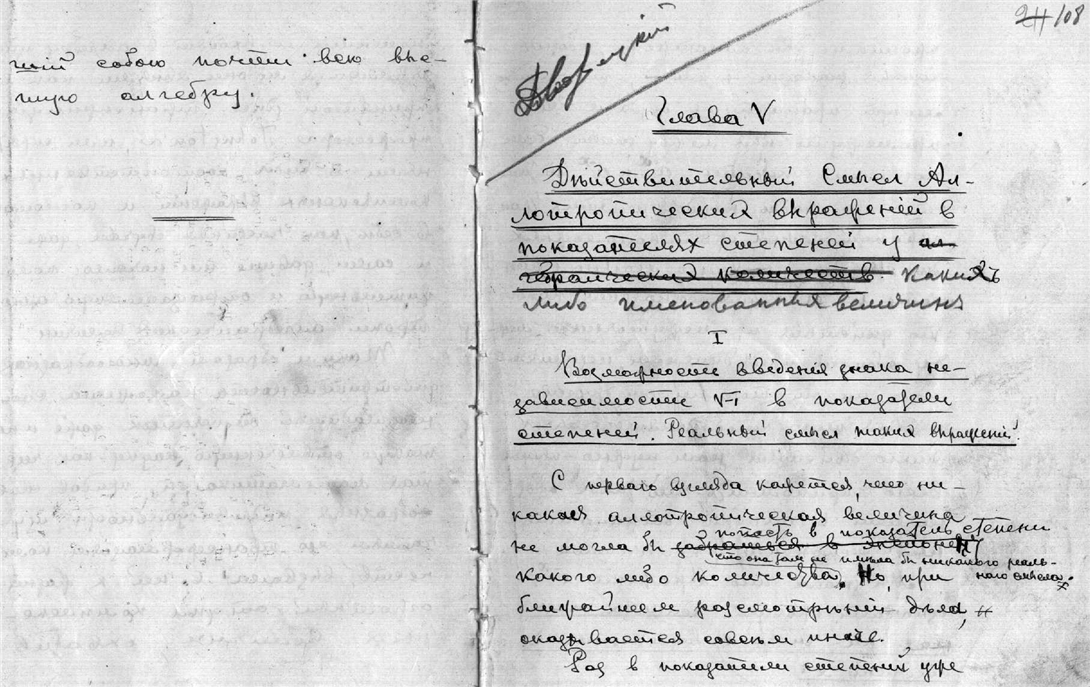 шій собою почти всю выс-
шую алгебру.
24 108
Глава V
Дѣйствительный смысл Ал-
лотропических выражений в
показателях степеней у ал-
гебраических количеств каких
либо именованных величинъ
I
Возможность введенія знака не-
зависимости √-1 в показатели
степеней. Реальный смысл таких выражений.
С перваго взгляда кажется, что ни-
какая аллотропическая величина
попасть в показатель степени
не могла бы забраться в
что она там не имела бы никакого реаль-
ного смысла.
какого либо количества, Но, при
ближайшем разсмотрѣнии дѣла,
оказывается совсѣм иначе.
Раз в показатели степеней уже